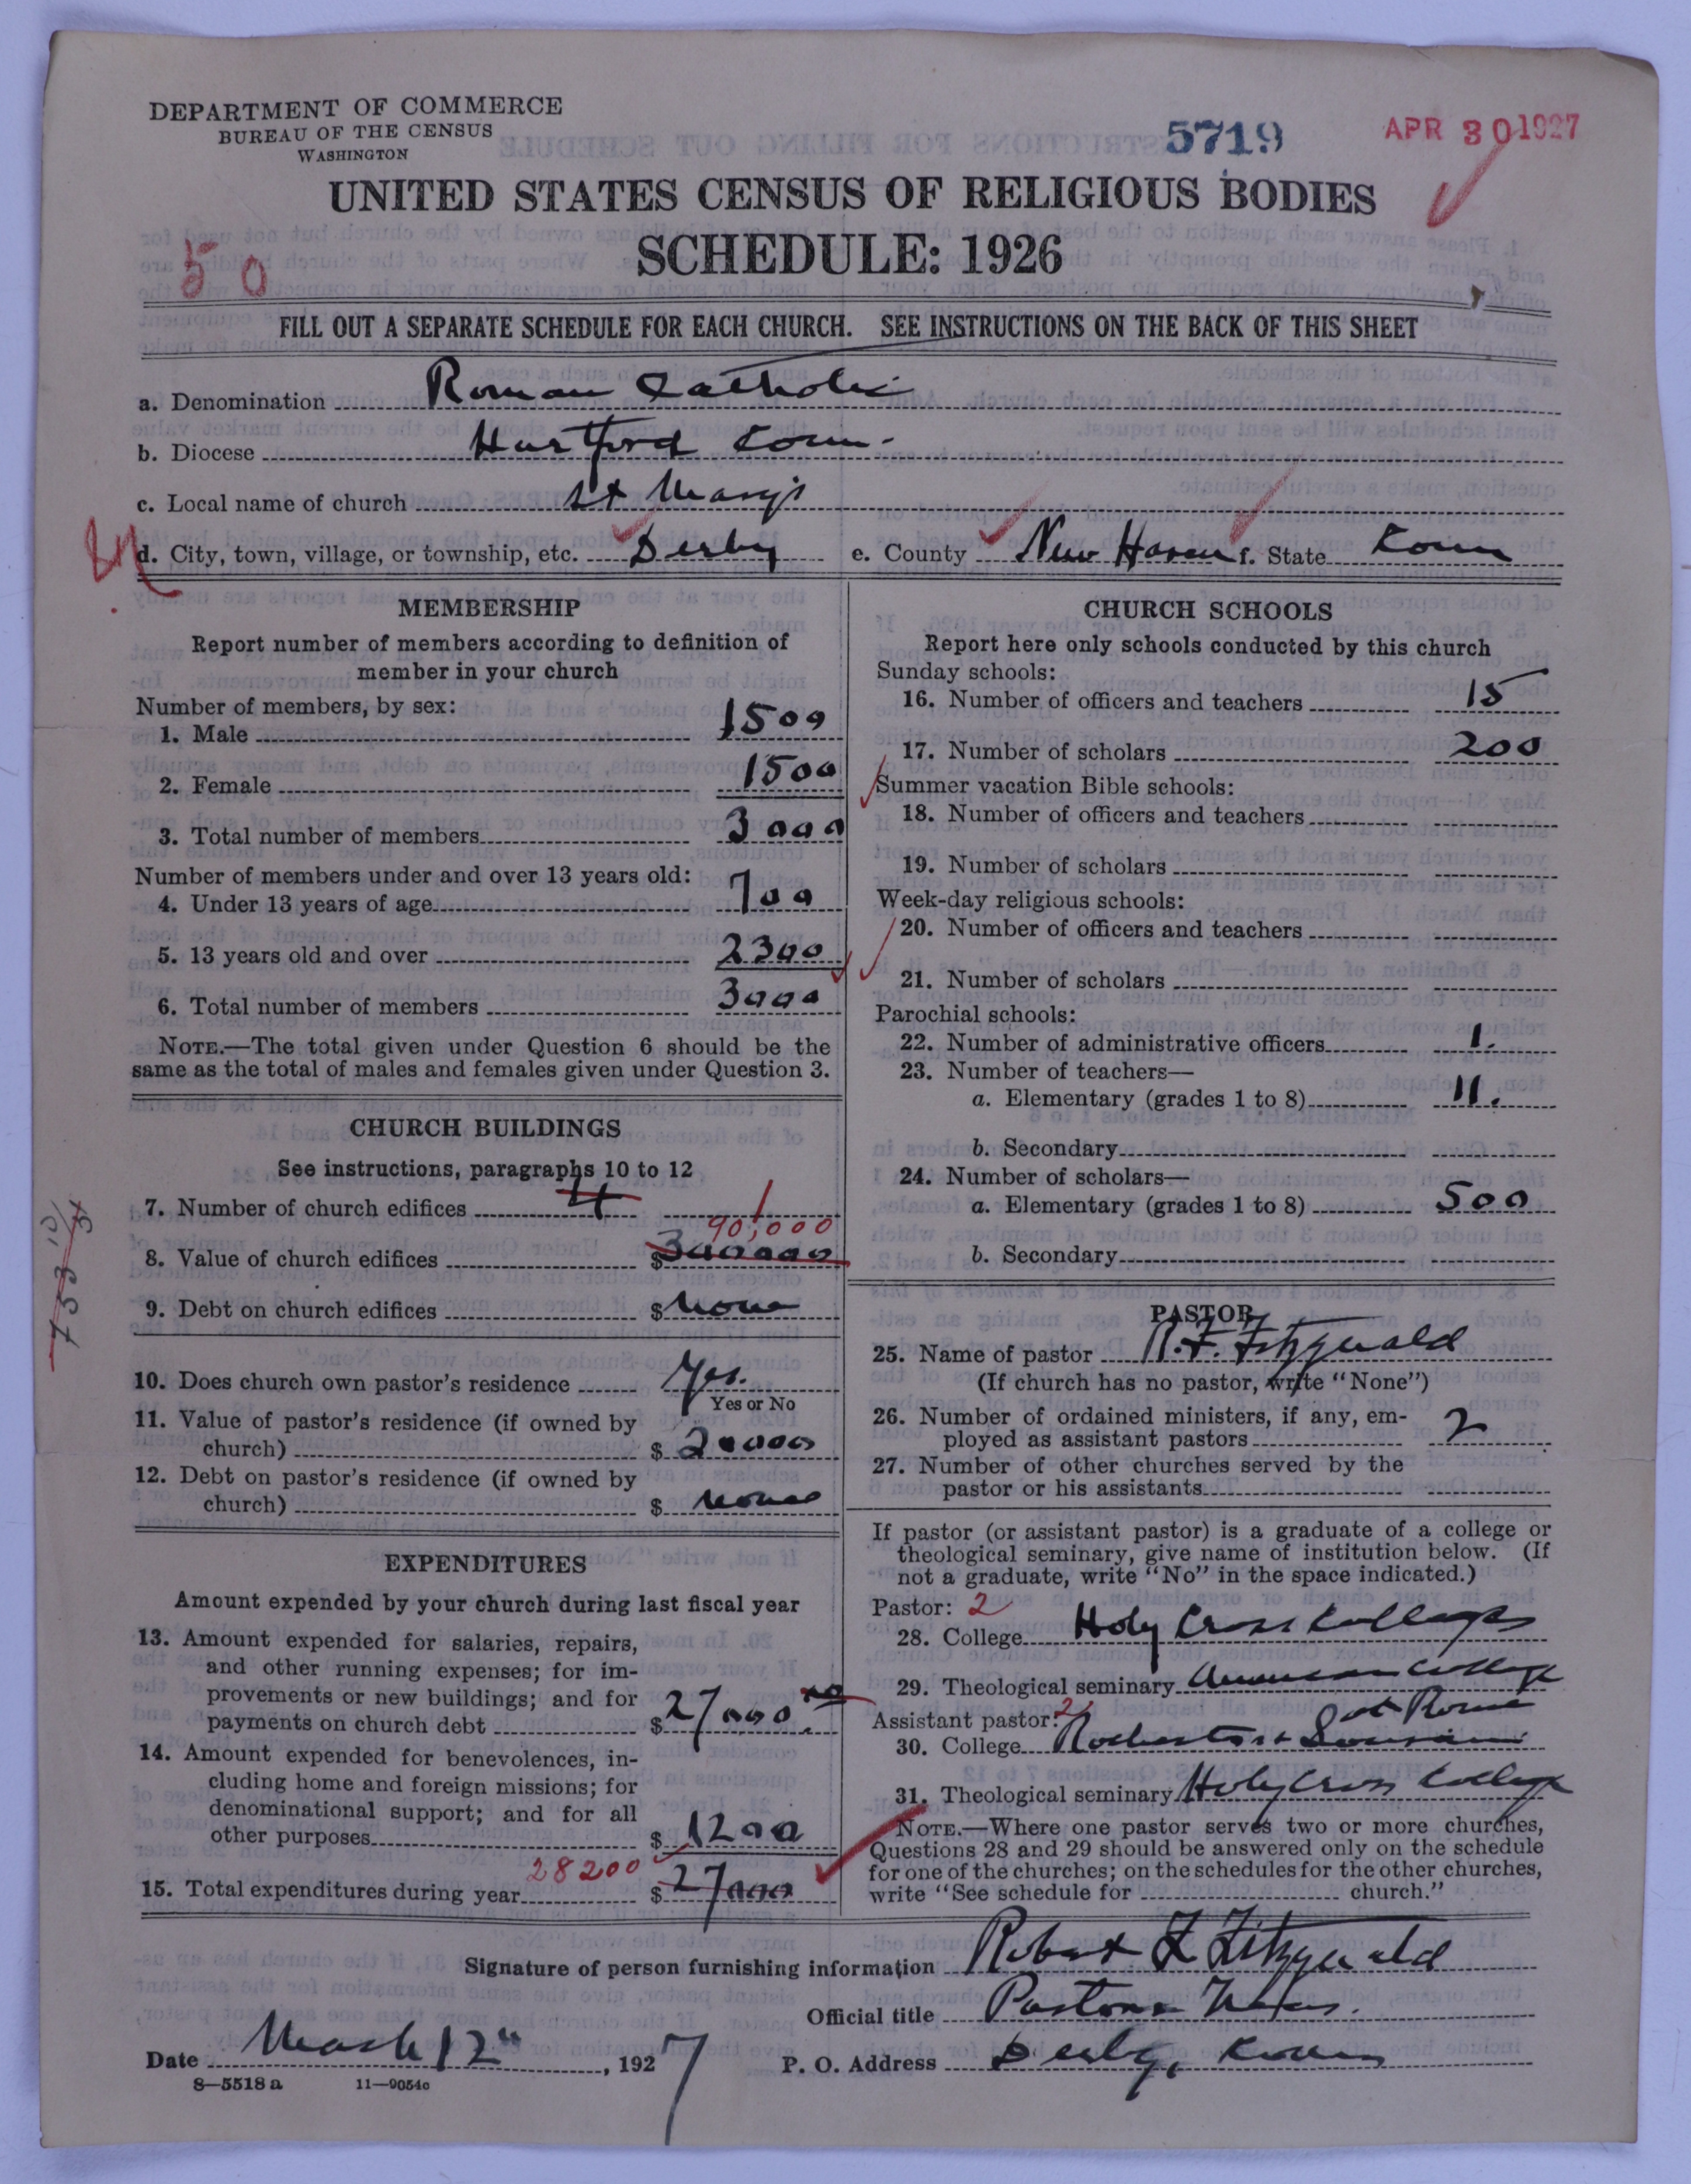 DEPARTMENT OF COMMERCE
BUREAU OF THE CENSUS
WASHINGTON
5719
APR 30 1927
UNITED STATES CENSUS OF RELIGIOUS BODIES
SCHEDULE: 1926
50
FILL OUT A SEPARATE SCHEDULE FOR EACH CHURCH. SEE INSTRUCTIONS ON THE BACK OF THIS SHEET
a. Denomination Roman Catholic
b. Diocese Hartford Conn.
c. Local name of church St Mary's
d. City, town, village, or township, etc. Derby e. County New Haven f. State Conn
MEMBERSHIP
Report number of members according to definition of
member in your church
Number of members, by sex:
1. Male 1500
2. Female 1500
3. Total number of members 3000
Number of members under and over 13 years old:
4. Under 13 years of age 700
5. 13 years old and over 2300
6. Total number of members 3000
NOTE.—The total given under Question 6 should be the
same as the total of males and females given under Question 3.
CHURCH BUILDINGS
See instructions, paragraphs 10 to 12
7. Number of church edifices 4 1
90,000
8. Value of church edifices $300000
9. Debt on church edifices $None
10. Does church own pastor's residence Yes.
Yes or No
11. Value of pastor's residence (if owned by
church) $20000
12. Debt on pastor's residence (if owned by
church) $None
EXPENDITURES
Amount expended by your church during last fiscal year
13. Amount expended for salaries, repairs,
and other running expenses; for im-
provements or new buildings; and for
payments on church debt $27000.
14. Amount expended for benevolences, in-
cluding home and foreign missions; for
denominational support; and for all
other purposes $1200
28200
15. Total expenditures during year $27000
CHURCH SCHOOLS
Report here only schools conducted by this church
Sunday schools:
16. Number of officers and teachers 15
17. Number of scholars 200
Summer vacation Bible schools:
18. Number of officers and teachers
19. Number of scholars
Week-day religious schools:
20. Number of officers and teachers
21. Number of scholars
Parochial schools:
22. Number of administrative officers 1.
23. Number of teachers—
a. Elementary (grades 1 to 8) 11.
b. Secondary
24. Number of scholars—
a. Elementary (grades 1 to 8) 500
b. Secondary
PASTOR
25. Name of pastor R. F. Fitzgerald
(If church has no pastor, write "None")
26. Number of ordained ministers, if any, em-
ployed as assistant pastors 2
27. Number of other churches served by the
pastor or his assistants
If pastor (or assistant pastor) is a graduate of a college or
theological seminary, give name of institution below. (If
not a graduate, write "No" in the space indicated.)
Pastor: 2
28. College Holy Cross College
29. Theological seminary American College
at Rome
Assistant pastor: 2
30. College Rochester +
31. Theological seminary Holy Cross College
NOTE.—Where one pastor serves two or more churches,
Questions 28 and 29 should be answered only on the schedule
for one of the churches; on the schedules for the other churches,
write "See schedule for church."
Signature of person furnishing information Robert F Fitzgerald
Official title Pastor
Date March 12", 1927 P. O. Address Derby, Conn
8—5518 a 11—9054c